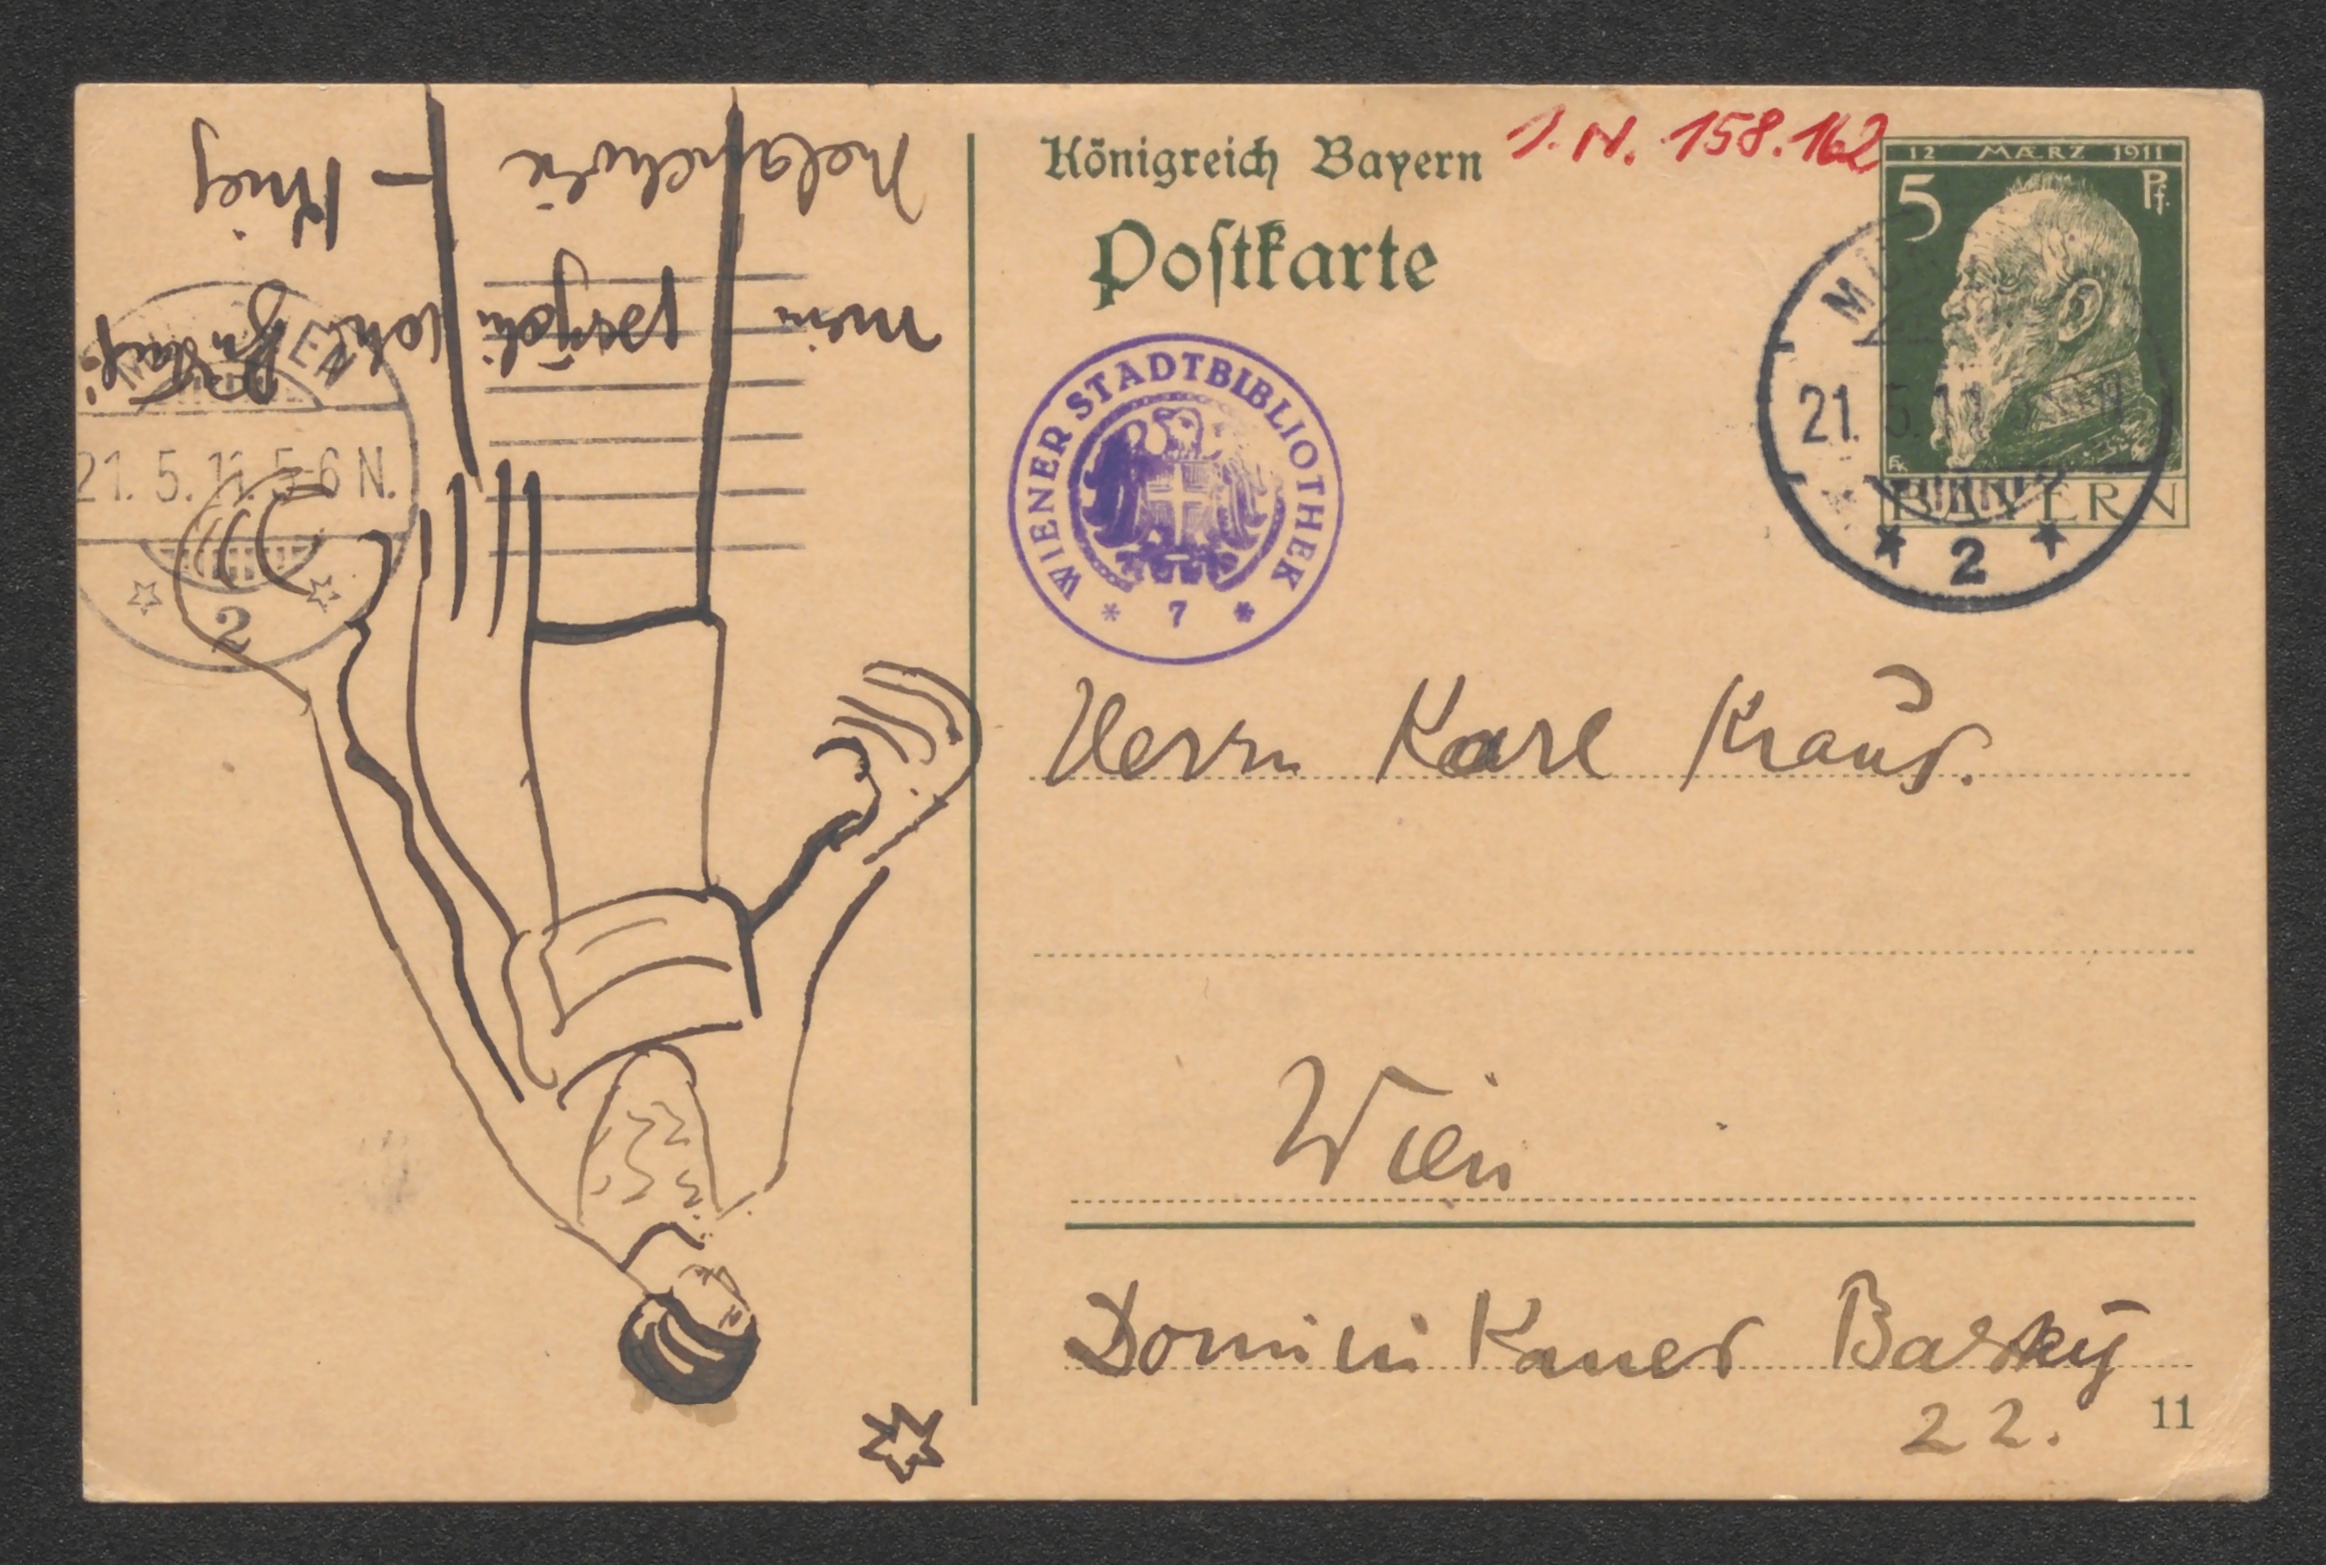 Königreich Bayern
1. N. 158.162
Postkarte
12 MÆRZ 1911
5 Pf.
BAYERN
21. 5. 11
2
WIENER STADTBIBLIOTHEK
* 7 *
Herrn Karl Kraus.
Wien
Dominikaner Bastey
22.
11
21. 5. 11. 5-6 N.
2
mein
Melancholie – Krieg